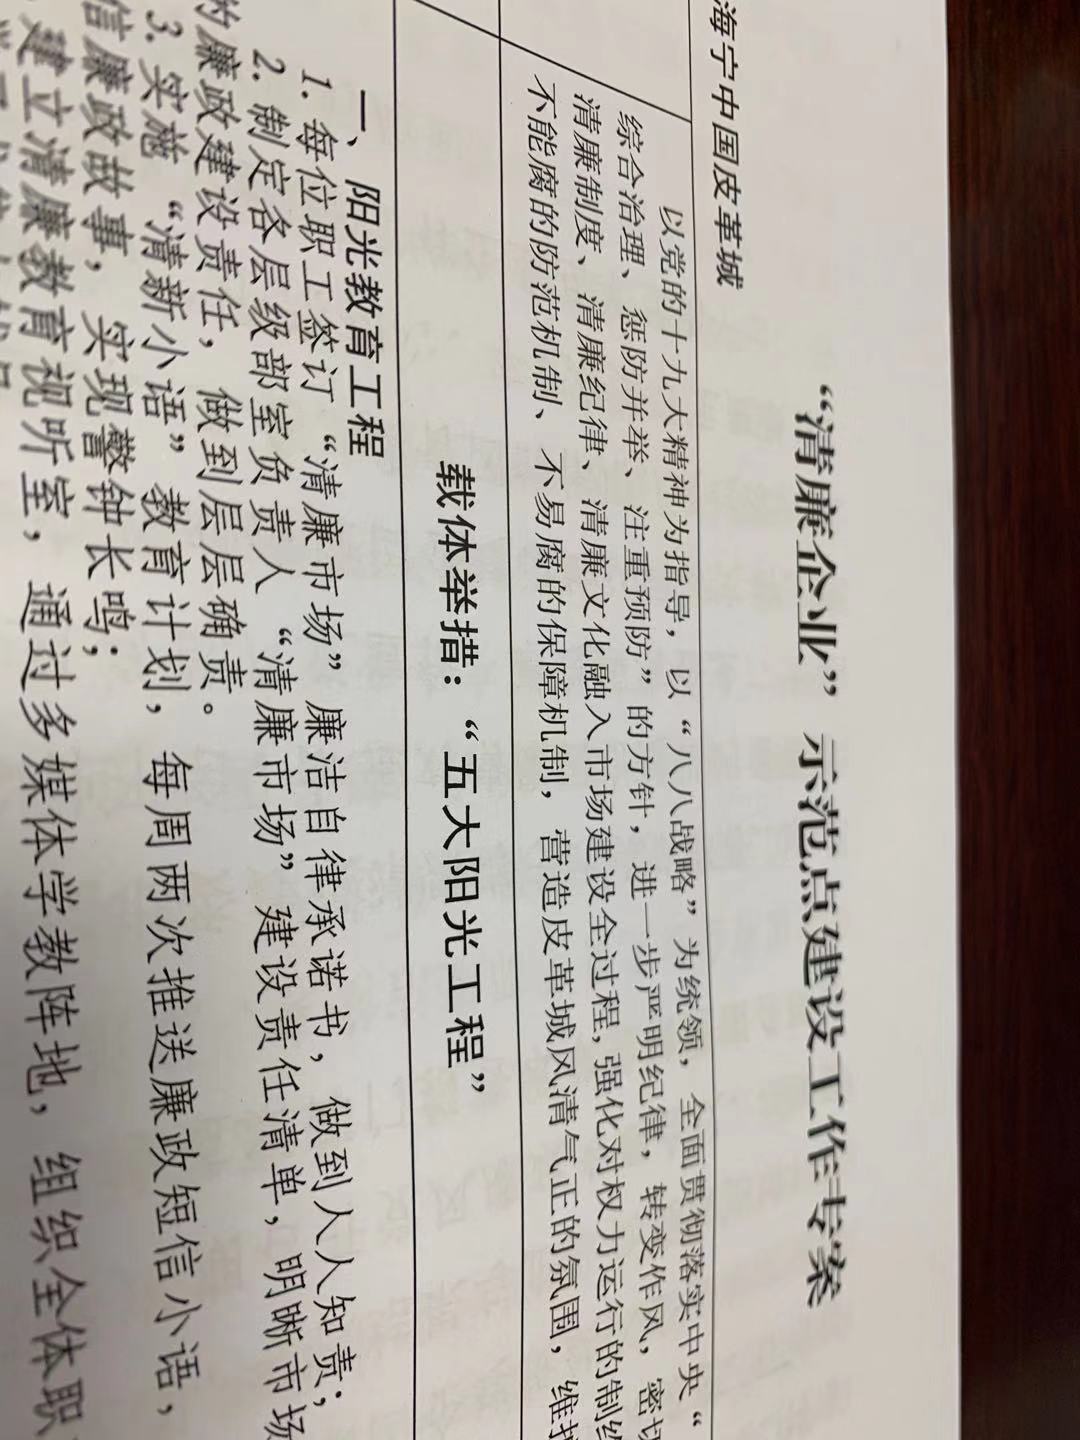 “清廉企业”示范点建设工作专案
海宁中国皮革城
以党的十九大精神为指导，以“八八战略”为统领，全面贯彻落实中央“
综合治理、惩防并举、注重预防”的方针，进一步严明纪律，转变作风，密切
清廉制度、清廉纪律、清廉文化融入市场建设全过程，强化对权力运行的制约
不能腐的防范机制、不易腐的保障机制，营造皮革城风清气正的氛围，维护
载体举措：“五大阳光工程”
一、阳光教育工程
1. 每位职工签订“清廉市场”廉洁自律承诺书，做到人人知责；
2. 制定各层级部室负责人“清廉市场”建设责任清单，明晰市场
的廉政建设责任，做到层层确责。
3. 实施“清新小语”教育计划，每周两次推送廉政短信小语，
信廉政故事，实现警钟长鸣；
建立清廉教育视听室，通过多媒体学教阵地，组织全体职